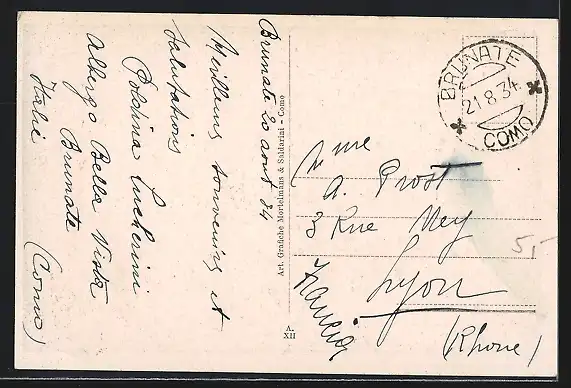 Brunate 20 aout 34
Meilleurs souvenirs et
salutations
Poldina Lucherini
Albergo Bella Vista
Brunate
Italie (Como)
Art. Grafiche Mortelmans & Saldarini - Como
A.
XII
BRUNATE
21.8.34
COMO
Mme
A. Prost
3 Rue Ney
Lyon
(Rhone)
Francia
5,-